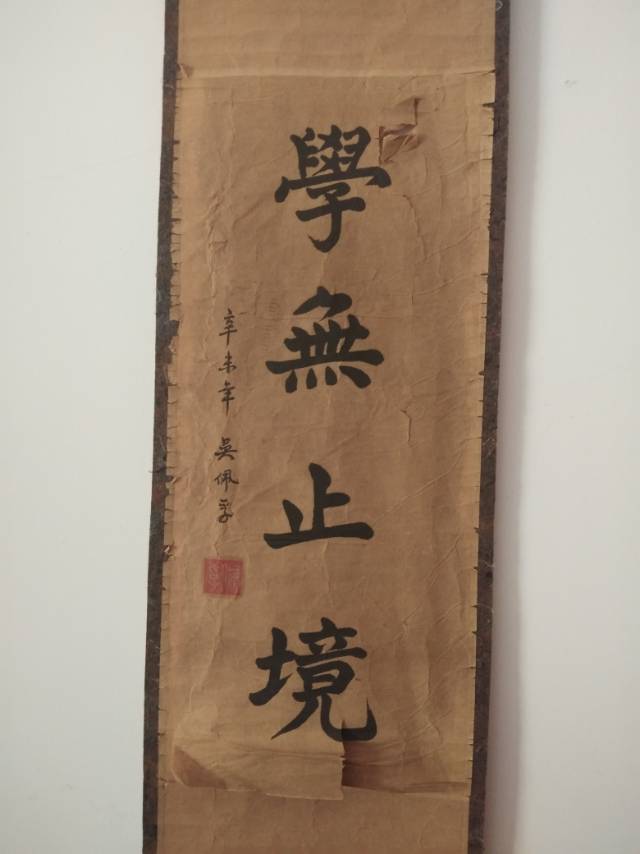 學無止境
辛未年 吳佩孚